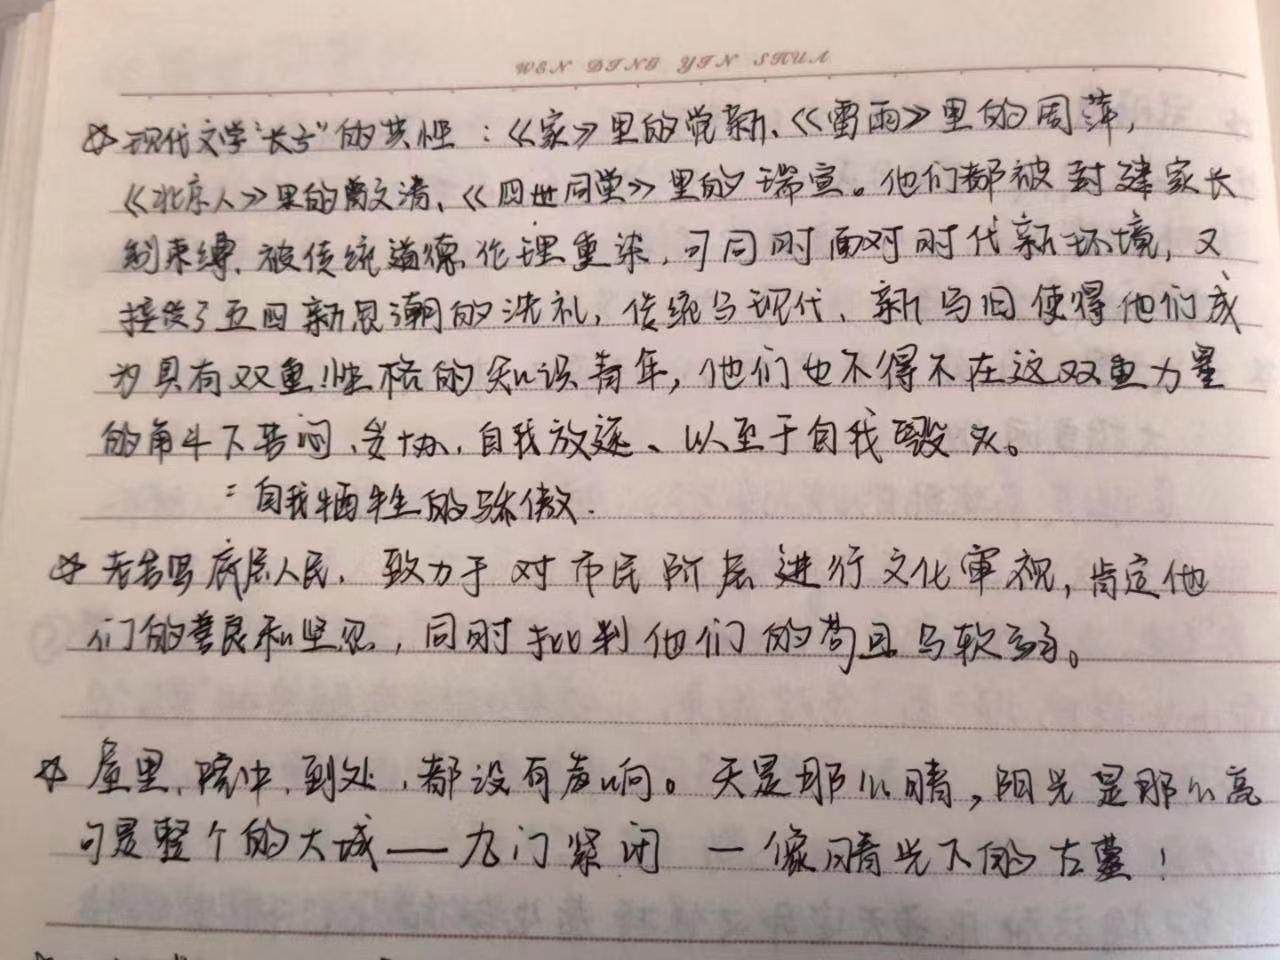 WEN DING YIN SHUA
☆现代文学“长子”的共性：《家》里的觉新、《雷雨》里的周萍，
《北京人》里的曾文清、《四世同堂》里的瑞宣。他们都被封建家长
制束缚、被传统道德伦理重染，可同时面对时代新环境，又
接受了五四新思潮的洗礼，传统与现代、新与旧使得他们成
为具有双重性格的知识青年，他们也不得不在这双重力量
的角斗下苦闷、妥协、自我放逐、以至于自我毁灭。
=自我牺牲的骄傲.
☆老舍写底层人民、致力于对市民阶层进行文化审视，肯定他
们的善良和坚忍，同时批判他们的苟且与软弱。
☆屋里、院中、到处、都没有声响。天是那么晴，阳光是那么亮
可是整个的大城——九门紧闭—像晴光下的古墓！